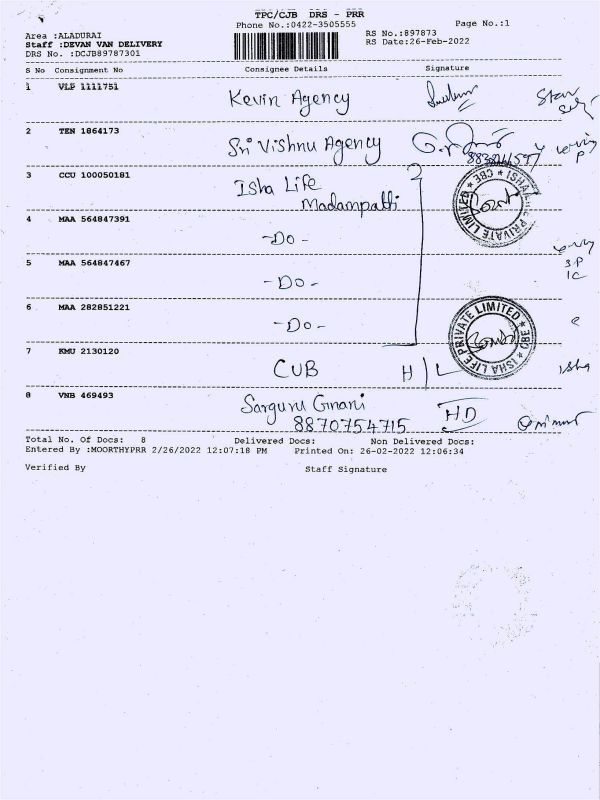 TPC/CJB DRS - PRR
Phone No.:0422-3505555
Page No.:1
Area :ALADURAI
Staff :DEVAN VAN DELIVERY
DRS No. :DCJB89787301
RS No.:897873
RS Date:26-Feb-2022
S No Consignment No Consignee Details Signature
1 VLP 1111751 Kevin Agency
2 TEN 1864173 Sri Vishnu Agency
3 CCU 100050181 Isha Life
Madampatti
ISHA LIFE PRIVATE LIMITED * CBE *
4 MAA 564847391 -Do-
5 MAA 564847467 -Do-
3P
1C
6 MAA 282851221 -Do-
ISHA LIFE PRIVATE LIMITED * CBE *
7 KMU 2130120 CUB H/L Isha
8 VNB 469493 Sarguru Gnani HD
8870754715
Total No. Of Docs: 8 Delivered Docs: Non Delivered Docs:
Entered By :MOORTHYPRR 2/26/2022 12:07:18 PM Printed On: 26-02-2022 12:06:34
Verified By Staff Signature